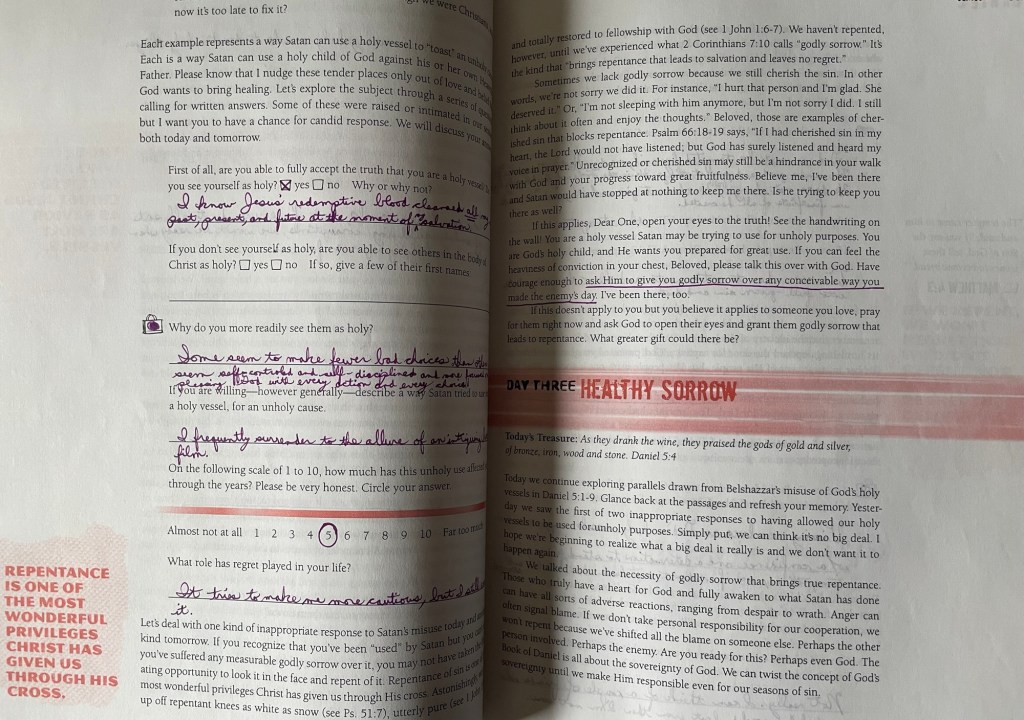 now it's too late to fix it?
we were Christians
Each example represents a way Satan can use a holy vessel to "toast" an
Each is a way Satan can use a holy child of God against his or her own
Father. Please know that I nudge these tender places only out of love and
God wants to bring healing. Let's explore the subject through a series of
calling for written answers. Some of these were raised or intimated in our
but I want you to have a chance for candid response. We will discuss your
both today and tomorrow.
First of all, are you able to fully accept the truth that you are a holy vessel
you see yourself as holy? ☒ yes ☐ no Why or why not?
I know Jesus' redemptive blood cleansed all my
past, present, and future at the moment of salvation.
If you don't see yourself as holy, are you able to see others in the body
Christ as holy? ☐ yes ☐ no If so, give a few of their first names
Why do you more readily see them as holy?
Some seem to make fewer bad choices
seem self-controlled and self-disciplined and more
pleasing God with every action and every choice
If you are willing—however generally—describe a way Satan tried to
a holy vessel, for an unholy cause.
I frequently surrender to the allure of an intriguing
film.
On the following scale of 1 to 10, how much has this unholy use
through the years? Please be very honest. Circle your answer.
Almost not at all 1 2 3 4 5 6 7 8 9 10 Far too much
What role has regret played in your life?
It tries to make me more cautious, but I still
it.
Let's deal with one kind of inappropriate response to Satan's misuse today and
kind tomorrow. If you recognize that you've been "used" by Satan but you
you've suffered any measurable godly sorrow over it, you may not have taken
ating opportunity to look it in the face and repent of it. Repentance of sin is
most wonderful privileges Christ has given us through His cross. Astonishingly
up off repentant knees as white as snow (see Ps. 51:7), utterly pure (see 1
REPENTANCE
IS ONE OF
THE MOST
WONDERFUL
PRIVILEGES
CHRIST HAS
GIVEN US
THROUGH HIS
CROSS.
and totally restored to fellowship with God (see 1 John 1:6-7). We haven't repented,
however, until we've experienced what 2 Corinthians 7:10 calls "godly sorrow." It's
the kind that "brings repentance that leads to salvation and leaves no regret."
Sometimes we lack godly sorrow because we still cherish the sin. In other
words, we're not sorry we did it. For instance, "I hurt that person and I'm glad. She
deserved it." Or, "I'm not sleeping with him anymore, but I'm not sorry I did. I still
think about it often and enjoy the thoughts." Beloved, those are examples of cher-
ished sin that blocks repentance. Psalm 66:18-19 says, "If I had cherished sin in my
heart, the Lord would not have listened; but God has surely listened and heard my
voice in prayer." Unrecognized or cherished sin may still be a hindrance in your walk
with God and your progress toward great fruitfulness. Believe me, I've been there
and Satan would have stopped at nothing to keep me there. Is he trying to keep you
there as well?
If this applies, Dear One, open your eyes to the truth! See the handwriting on
the wall! You are a holy vessel Satan may be trying to use for unholy purposes. You
are God's holy child, and He wants you prepared for great use. If you can feel the
heaviness of conviction in your chest, Beloved, please talk this over with God. Have
courage enough to ask Him to give you godly sorrow over any conceivable way you
made the enemy's day. I've been there, too.
If this doesn't apply to you but you believe it applies to someone you love, pray
for them right now and ask God to open their eyes and grant them godly sorrow that
leads to repentance. What greater gift could there be?
DAY THREE HEALTHY SORROW
Today's Treasure: As they drank the wine, they praised the gods of gold and silver,
of bronze, iron, wood and stone. Daniel 5:4
Today we continue exploring parallels drawn from Belshazzar's misuse of God's holy
vessels in Daniel 5:1-9. Glance back at the passages and refresh your memory. Yester-
day we saw the first of two inappropriate responses to having allowed our holy
vessels to be used for unholy purposes. Simply put, we can think it's no big deal. I
hope we're beginning to realize what a big deal it really is and we don't want it to
happen again.
We talked about the necessity of godly sorrow that brings true repentance.
Those who truly have a heart for God and fully awaken to what Satan has done
can have all sorts of adverse reactions, ranging from despair to wrath. Anger can
often signal blame. If we don't take personal responsibility for our cooperation, we
won't repent because we've shifted all the blame on someone else. Perhaps the other
person involved. Perhaps the enemy. Are you ready for this? Perhaps even God. The
Book of Daniel is all about the sovereignty of God. We can twist the concept of God's
sovereignty until we make Him responsible even for our seasons of sin.